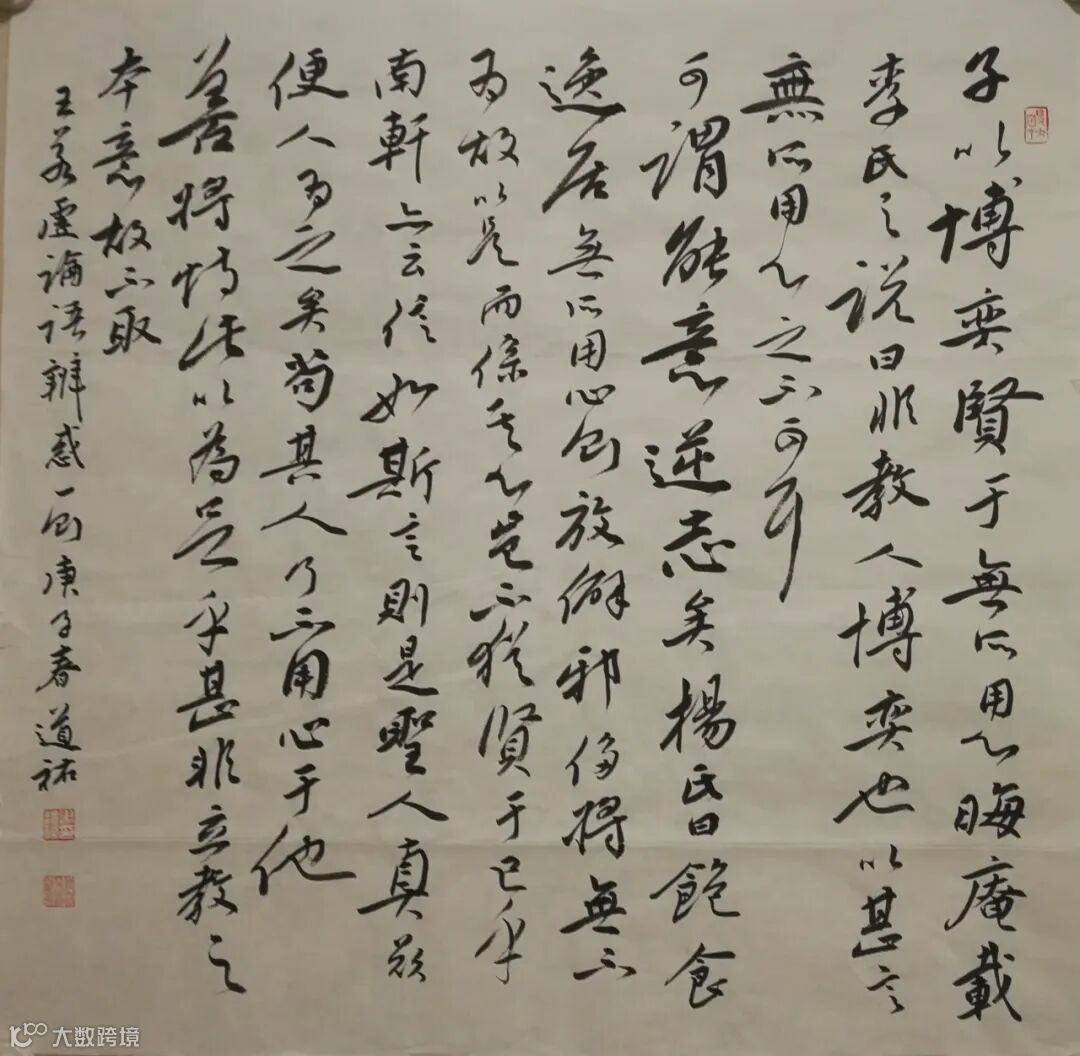 子以博奕賢于無所用心晦庵載
李氏之說曰非教人博奕也以甚言
無所用心之不可耳
可謂能意逆志矣楊氏曰飽食
逸居無所用心則放僻邪侈將無不
为故以是而係其心豈不猶賢于已乎
南軒亦云信如斯言則是聖人真欲
便人为之矣苟其人乃不用心于他
善將恃此以為足乎甚非立教之
本意故不取
王若虛論語辨惑一則庚子春道祐
大数跨境